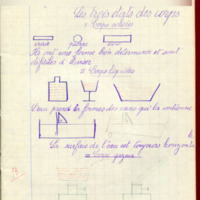 Les trois états des corps
1 Corps solides
craie
règle
Ils ont une forme bien déterminée et sont
difficiles à diviser
2 Corps liquides
L'eau prend la forme des vases qui la contienne
La surface de l'eau est toujours horizontale
3 Corps gazeux